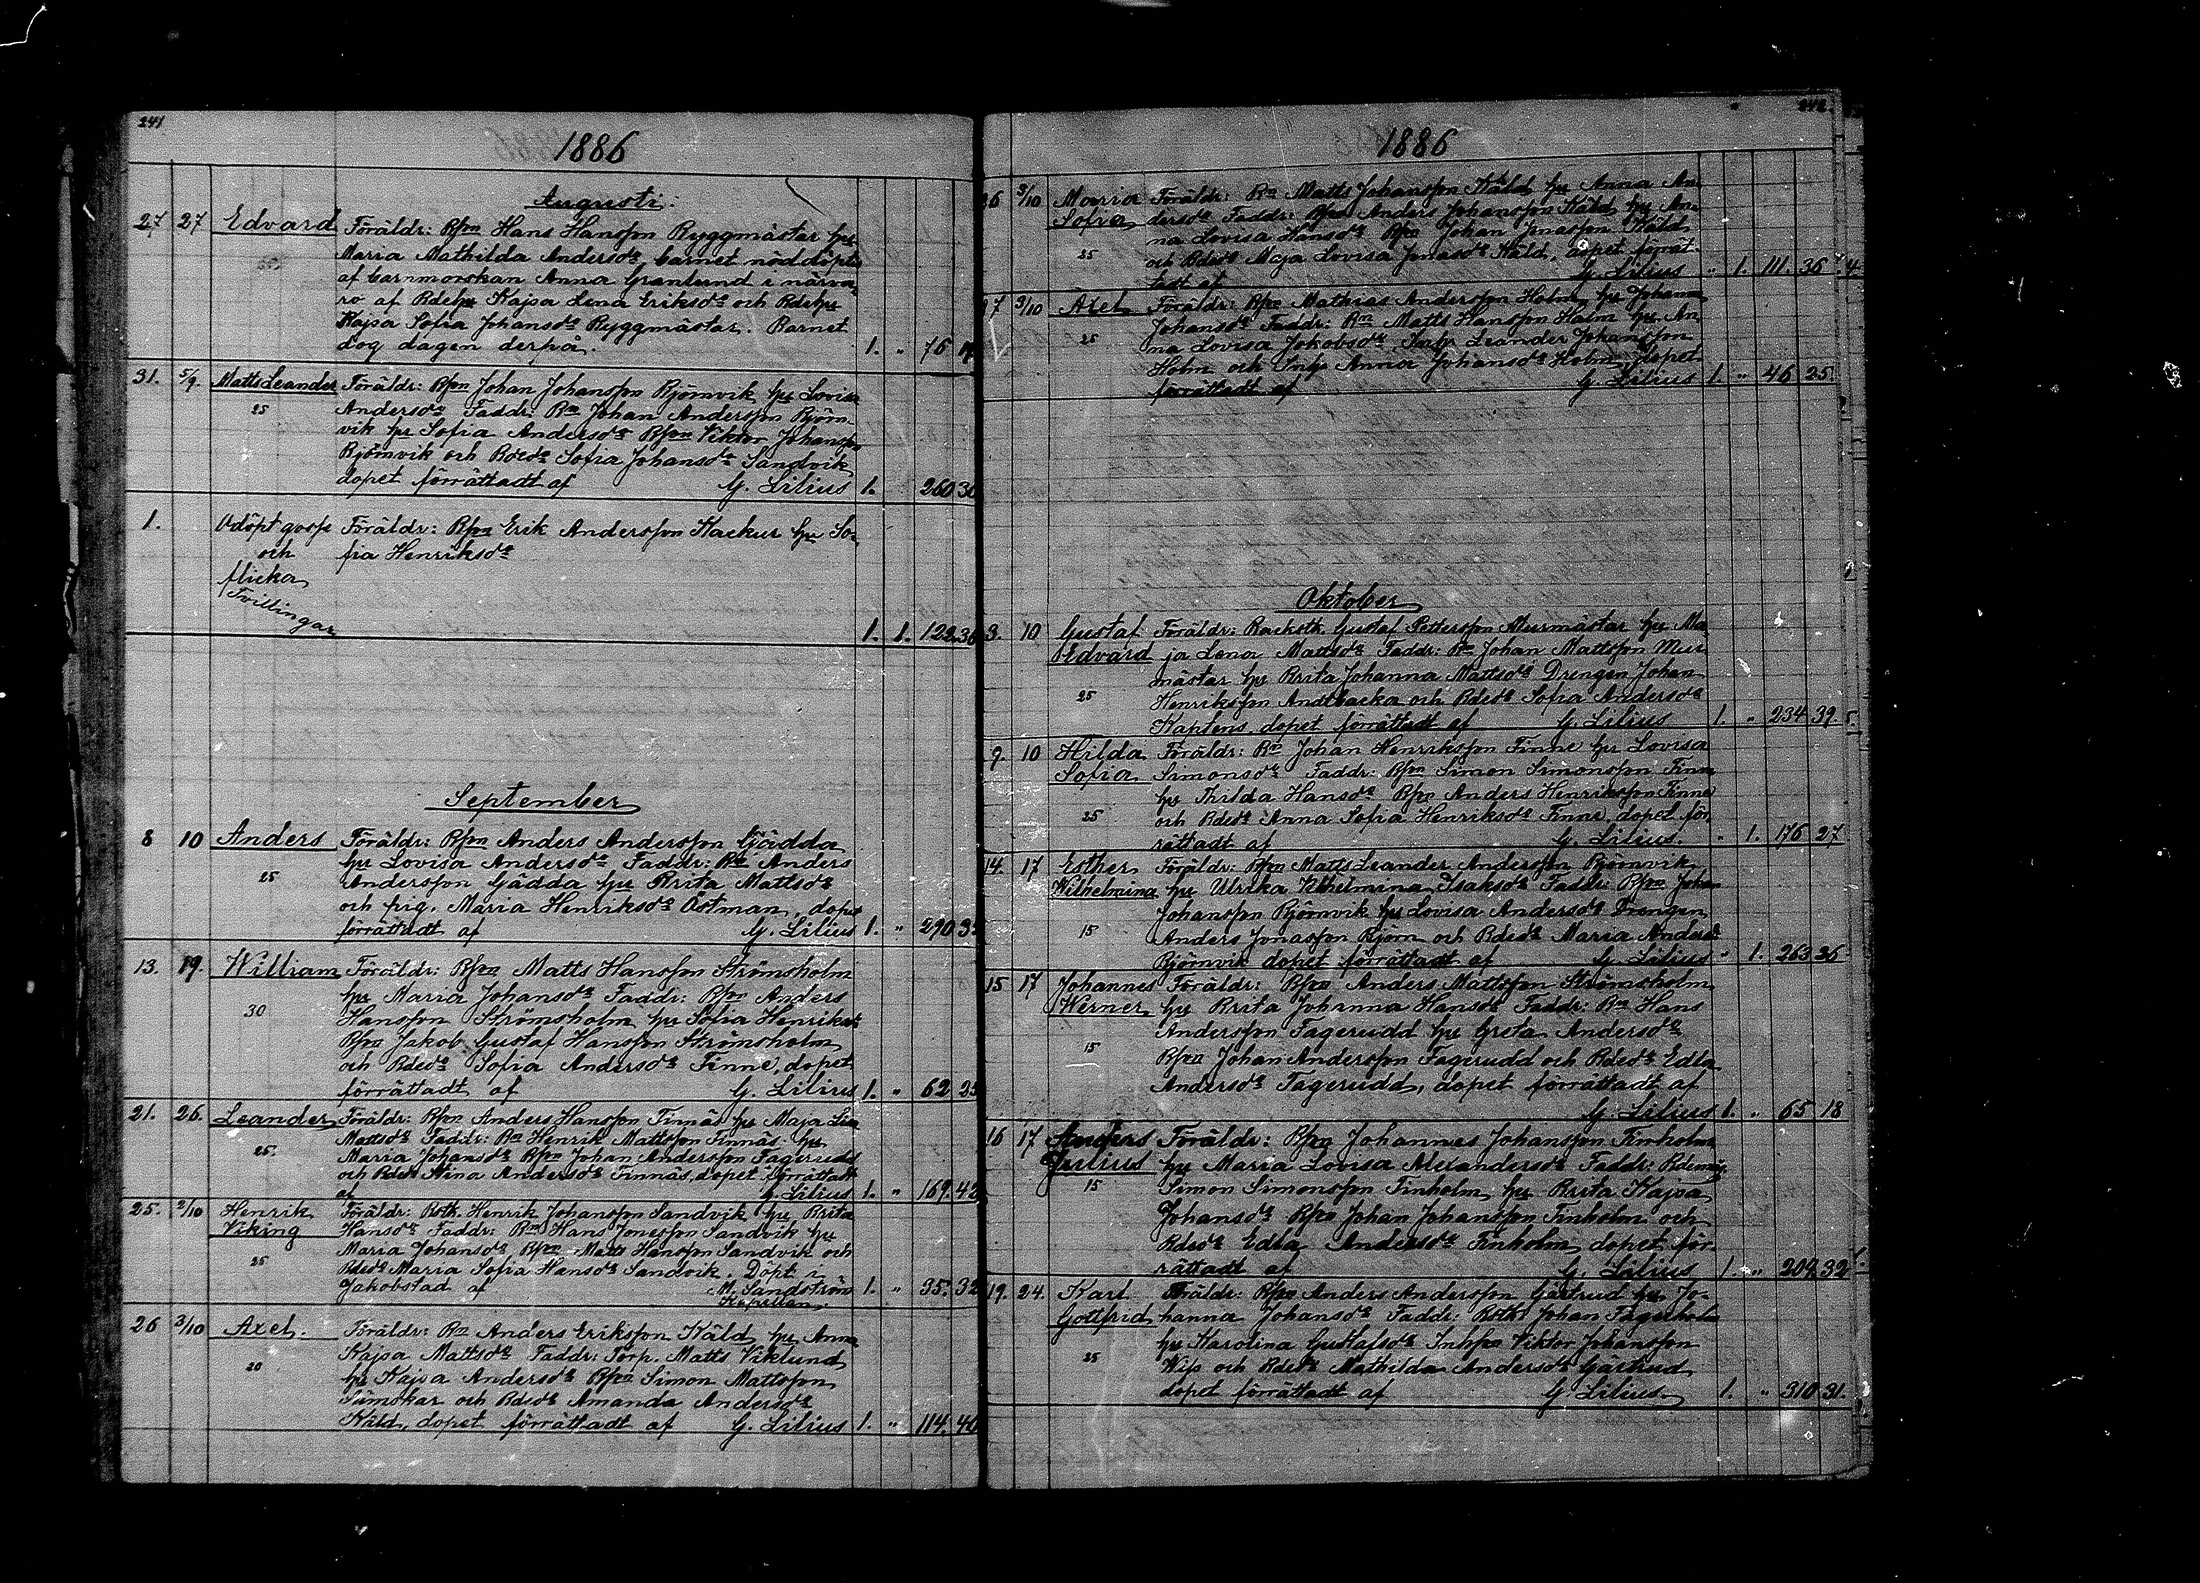 241
1886
Augusti.
27 27 Edvard Föräldr: Bspn Hans Hansson Byggmästar hu
Maria Mathilda Andersdr, barnet nöddöptes
af barnmorskan Anna Granlund i närva-
ro af Bdehu Kajsa Lena Eriksdr och Bdehu
Kajsa Sofia Johansdr Byggmästar. Barnet
dog dagen derpå. 1. " 76
31. 5/9. Matts Leander Föräldr: Bspn Johan Johansson Björnvik hu Lovisa
25 Andersdr Faddr: Bn Johan Andersson Björn-
vik hu Sofia Andersdr Bspn Viktor Johansson
Björnvik och Bdedr Sofia Johansdr Sandvik
dopet förrättadt af G. Lilius 1. 260 30
1. Odöpt gosse Föräldr: Bspn Erik Andersson Kackur hu So-
och fia Henriksdr
flicka
Tvillingar
1. 1. 123. 36
September
8 10 Anders Föräldr: Bspn Anders Andersson Gädda
hu Lovisa Andersdr Faddr: Bn Anders
25 Andersson Gädda hu Brita Mattsdr
och pig. Maria Henriksdr Östman, dopet
förrättadt af G. Lilius 1. " 290 35
13. 19. William Föräldr: Bspn Matts Hansson Strömsholm
hu Maria Johansdr Faddr: Bspn Anders
30 Hansson Strömsholm hu Sofia Henriksdr
Bspn Jakob Gustaf Hansson Strömsholm
och Bdedr Sofia Andersdr Finne, dopet
förrättadt af G. Lilius 1. " 62 25
21. 26. Leander Föräldr: Bspn Anders Hansson Finnäs hu Maja Lisa
Mattsdr Faddr: Bn Henrik Mattsson Finnäs hu
25. Maria Johansdr Bspn Johan Andersson Fagerudd
och Bdedr Stina Andersdr Finnäs, dopet förrättadt
af G. Lilius 1. " 169. 42
25. 2/10 Henrik Föräldr: Roth. Henrik Johansson Sandvik hu Brita
Viking Hansdr Faddr: Bn Hans Jonasson Sandvik hu
Maria Johansdr Bspn Matts Hansson Sandvik och
25 Bdedr Maria Sofia Hansdr Sandvik. Döpt i
Jakobstad af M. Sandström 1. " 35. 32
Kapellan.
26 3/10 Axel. Föräldr: Bn Anders Eriksson Käld hu Anna
Kajsa Mattsdr Faddr: Torp. Matts Viklund
20 hu Kajsa Andersdr Bspn Simon Mattsson
Sämskar och Bdedr Amanda Andersdr
Käld, dopet förrättadt af G. Lilius 1. " 114. 40
242.
1886
26 3/10 Maria Föräldr: Bn Matts Johansson Käld hu Anna An-
Sofia dersdr Faddr: Bspn Anders Johansson Käld hu An-
na Lovisa Hansdr Bspn Johan Jonasson Käld
25 och Bdedr Maja Lovisa Jonasdr Käld, dopet förrät-
tadt af G. Lilius " 1. 111. 36
27 3/10 Axel Föräldr: Bspn Mathias Andersson Holm hu Johanna
Johansdr Faddr: Bn Matts Hansson Holm hu An-
25 na Lovisa Jakobsdr, Inhs Leander Johansson
Holm och Inhs Anna Johansdr Holm, dopet
förrättadt af G. Lilius 1. " 46 25.
Oktober
3. 10 Gustaf Föräldr: Backstk. Gustaf Pettersson Murmästar hu Ma-
Edvard ja Lena Mattsdr Faddr: Bn Johan Mattsson Mur-
mästar hu Brita Johanna Mattsdr Drengen Johan
25 Henriksson Andtbacka och Bdedr Sofia Andersdr
Kaptens, dopet förrättadt af G. Lilius 1. " 234 39.
9. 10 Hilda Föräldr: Bn Johan Henriksson Finne hu Lovisa
Sofia Simonsdr Faddr: Bspn Simon Simonsson Finne
hu Thilda Hansdr Bspn Anders Henriksson Finne
25 och Bdedr Anna Sofia Henriksdr Finne, dopet för-
rättadt af G. Lilius. " 1. 176 27
14. 17 Esther Föräldr: Bspn Matts Leander Andersson Björnvik
Wilhelmina hu Ulrika Wilhelmina Isaksdr Faddr: Bspn Johan
Johansson Björnvik hu Lovisa Andersdr Drengen
15 Anders Jonasson Björn och Bdedr Maria Andersdr
Björnvik dopet förrättadt af G. Lilius " 1. 263 36
15 17 Johannes Föräldr: Bspn Anders Mattsson Strömsholm
Werner hu Brita Johanna Hansdr Faddr: Bn Hans
Andersson Fagerudd hu Greta Andersdr
15 Bspn Johan Andersson Fagerudd och Bdedr Edla
Andersdr Fagerudd, dopet förrättadt af
G. Lilius 1. " 65 18
16 17 Anders Föräldr: Bspn Johannes Johansson Finholm
Julius hu Maria Lovisa Alexandersdr Faddr: Bdemåg
15 Simon Simonsson Finholm hu Brita Kajsa
Johansdr Bspn Johan Johansson Finholm och
Bdedr Edla Andersdr Finholm dopet för-
rättadt af G. Lilius 1. " 209 32
19. 24. Karl Föräldr: Bspn Anders Andersson Gästrud hu Jo-
Gottfrid hanna Johansdr Faddr: Roth Johan Fagerholm
hu Karolina Gustafsdr Inhspn Viktor Johansson
25 Wiss och Bdedr Mathilda Andersdr Gästrud
dopet förrättadt af G. Lilius. 1. " 310 31.